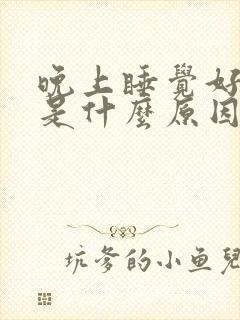 晚上睡覺好
是什麼原因
坑爹的小鱼兒